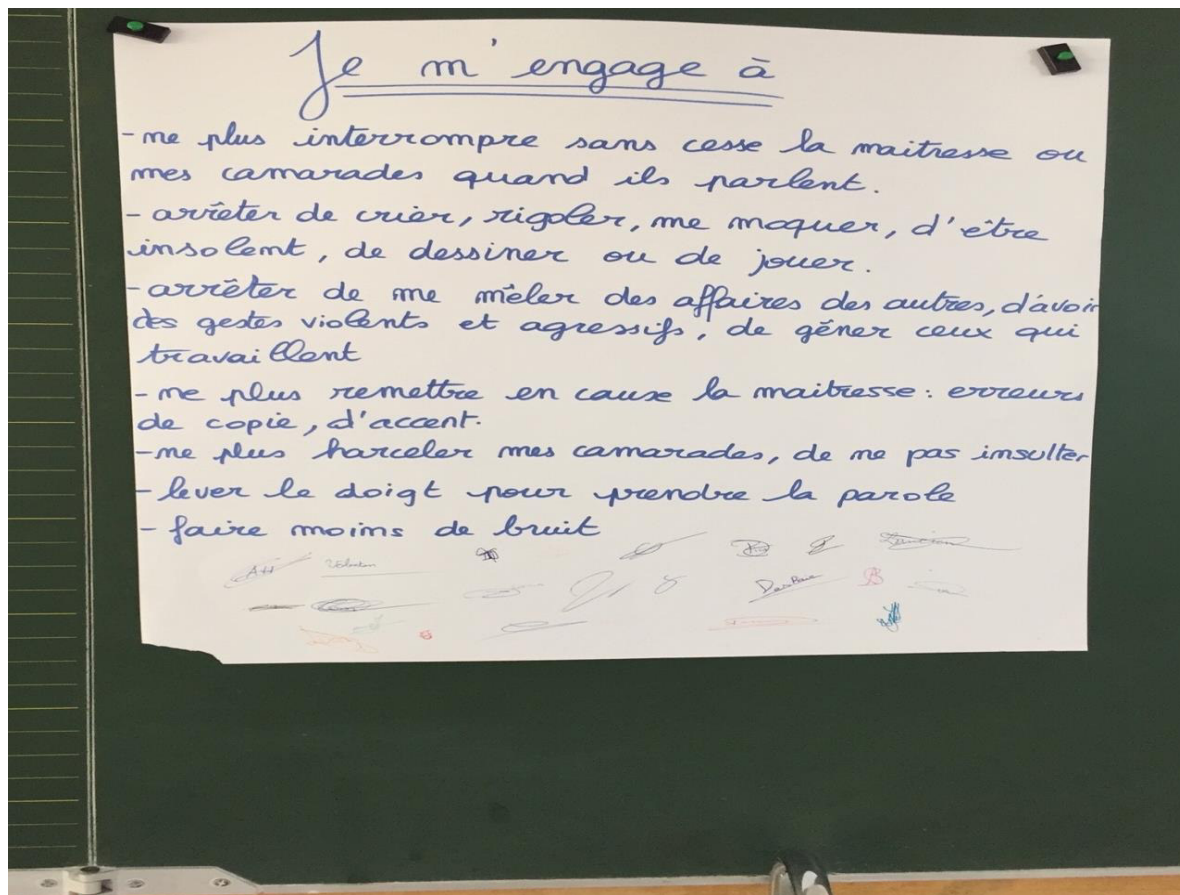 Je m'engage à
- ne plus interrompre sans cesse la maitresse ou
mes camarades quand ils parlent.
- arrêter de crier, rigoler, me moquer, d'être
insolent, de dessiner ou de jouer.
- arrêter de me mêler des affaires des autres, d'avoir
des gestes violents et agressifs, de gêner ceux qui
travaillent
- ne plus remettre en cause la maitresse : erreurs
de copie, d'accent.
- ne plus harceler mes camarades, de ne pas insulter
- lever le doigt pour prendre la parole
- faire moins de bruit